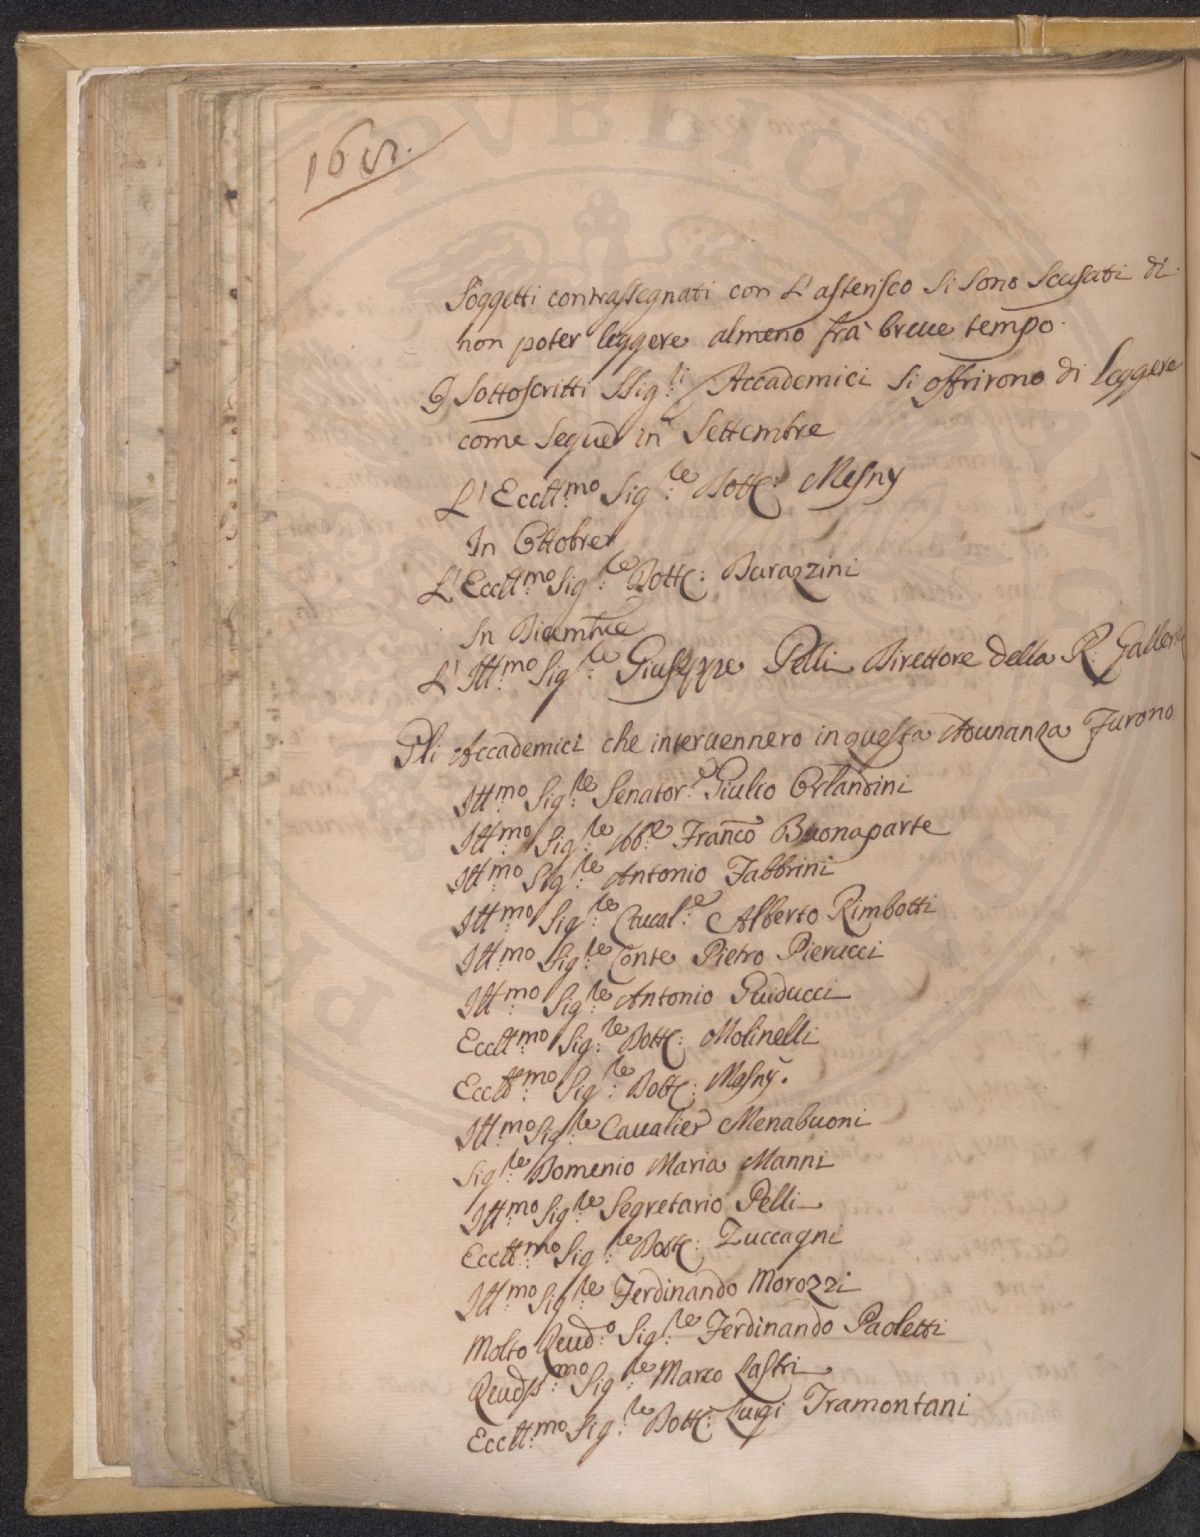 Soggetti contrassegnati con L' asterisco si sono Scusati di
non poter leggere almeno frà breue tempo.
Sottoscritti SSig:ri Accademici si offrirono di Leggere
come Segue in Settembre
L' Eccll:mo Sig:re Dott: Mesny
In Ottobre
L' Eccll:mo Sig:re Dott: Durazzini
In Dicembre
L' Ill:mo Sig:re Giuseppe Pelli Direttore della R: Galleria
Gli Accademici che interuennero in questa Adunanza Furono
Ill:mo Sig:re Senator:e Giulio Orlandini
Ill:mo Sig:re Ab:e Franco Buonaparte
Ill:mo Sig:re Antonio Fabbrini
Ill:mo Sig:re Caual:e Alberto Rimbotti
Ill:mo Sig:re Conte Pietro Pierucci
Ill:mo Sig:re Antonio Guiducci
Eccll:mo Sig:re Dott: Molinelli
Eccll:mo Sig:re Dott: Mesny.
Ill:mo Sig:re Caualier Menabuoni
Sig:re Domenio Maria Manni
Ill:mo Sig:re Segretario Pelli
Eccll:mo Sig:re Dott: Zuccagni
Ill:mo Sig:re Ferdinando Morozzi
Molto Reud:o Sig:re Ferdinando Paoletti
Reudss:mo Sig:re Marco Lastri
Eccll:mo Sig:re Dott: Luigi Tramontani